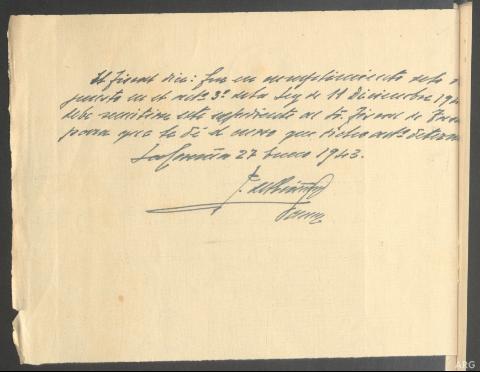 El Fiscal dice: que en cumplimiento de lo
puesto en el artº 3º de la Ley de 11 diciembre 194
debe remitirse este expediente al Sr. Fiscal de
para que le dé el curso que dicho artº determ
La Coruña 27 Enero 1943.
ARG